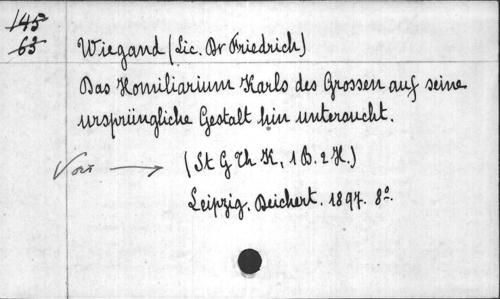 145
63
Wiegand (Lic. Dr Friedrich)
Das Homiliarium Karls des Grossen auf seine
ursprüngliche Gestalt hin untersucht.
Voir → (St G Th K, 1 B. 2 H.)
Leipzig. Deichert. 1897. 8°.